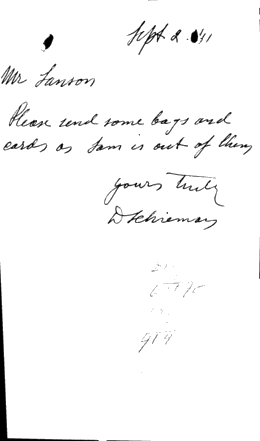 Sept 2 '41
Mr Lanson
Please send some bags and
cards as Sam is out of them
yours truly
D Schieman